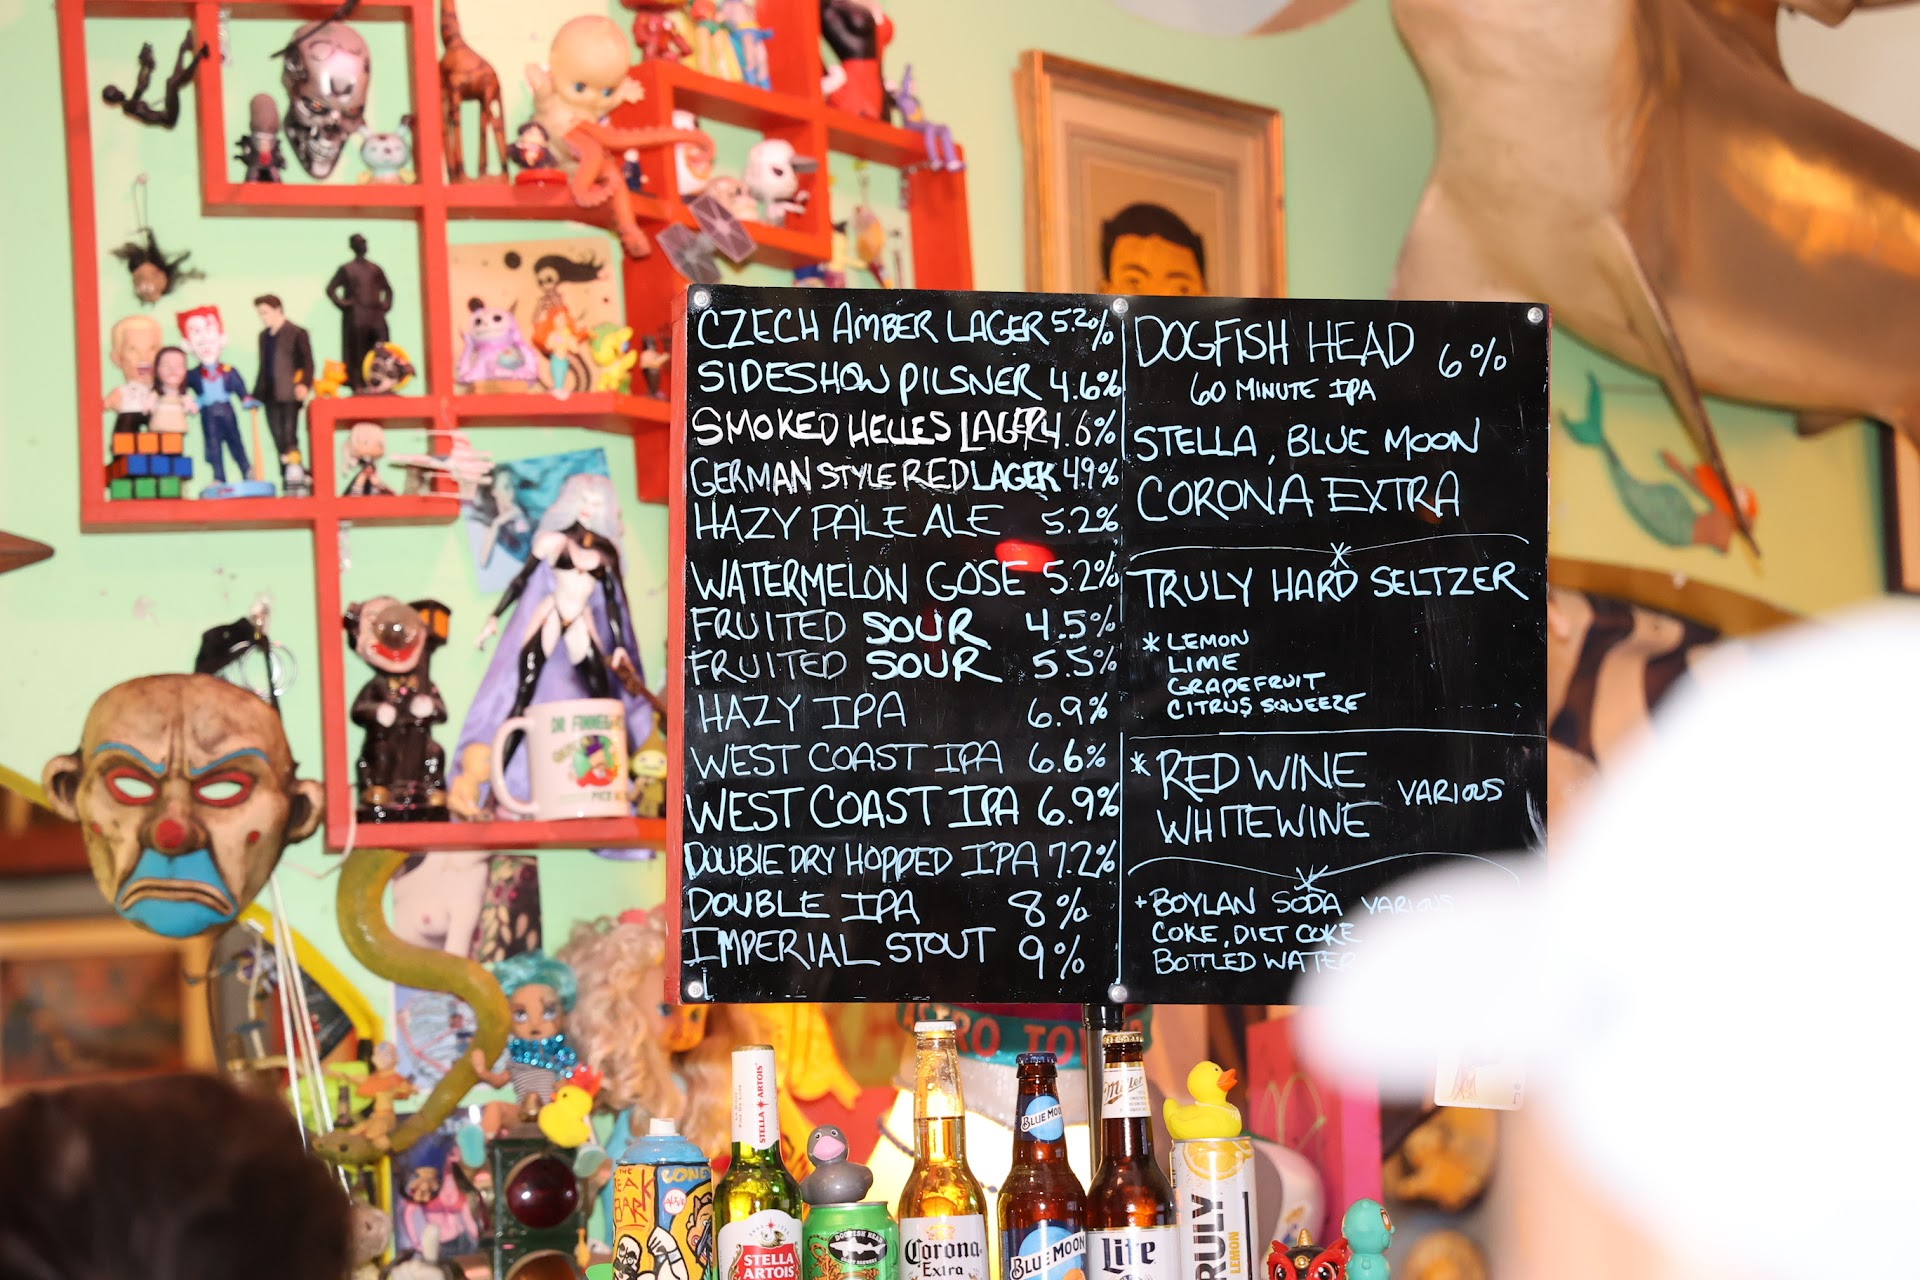 CZECH AMBER LAGER 5.2%
SIDESHOW PILSNER 4.6%
SMOKED HELLES LAGER 4.6%
GERMAN STYLE RED LAGER 4.9%
HAZY PALE ALE 5.2%
WATERMELON GOSE 5.2%
FRUITED SOUR 4.5%
FRUITED SOUR 5.5%
HAZY IPA 6.9%
WEST COAST IPA 6.6%
WEST COAST IPA 6.9%
DOUBLE DRY HOPPED IPA 7.2%
DOUBLE IPA 8%
IMPERIAL STOUT 9%
DOGFISH HEAD 6%
60 MINUTE IPA
STELLA, BLUE MOON
CORONA EXTRA
TRULY HARD SELTZER
* LEMON
LIME
GRAPEFRUIT
CITRUS SQUEEZE
* RED WINE
WHITE WINE
VARIOUS
+ BOYLAN SODA VARIOUS
COKE, DIET COKE
BOTTLED WATER
STELLA ARTOIS
STELLA
ARTOIS
DOGFISH HEAD
Corona
Extra
BLUE MOON
BLUE MOON
Miller
Lite
TRULY
LEMON